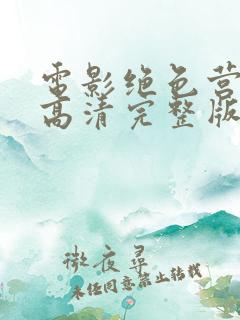 电影绝色营
高清完整版
微夜寻
未经同意禁止转载